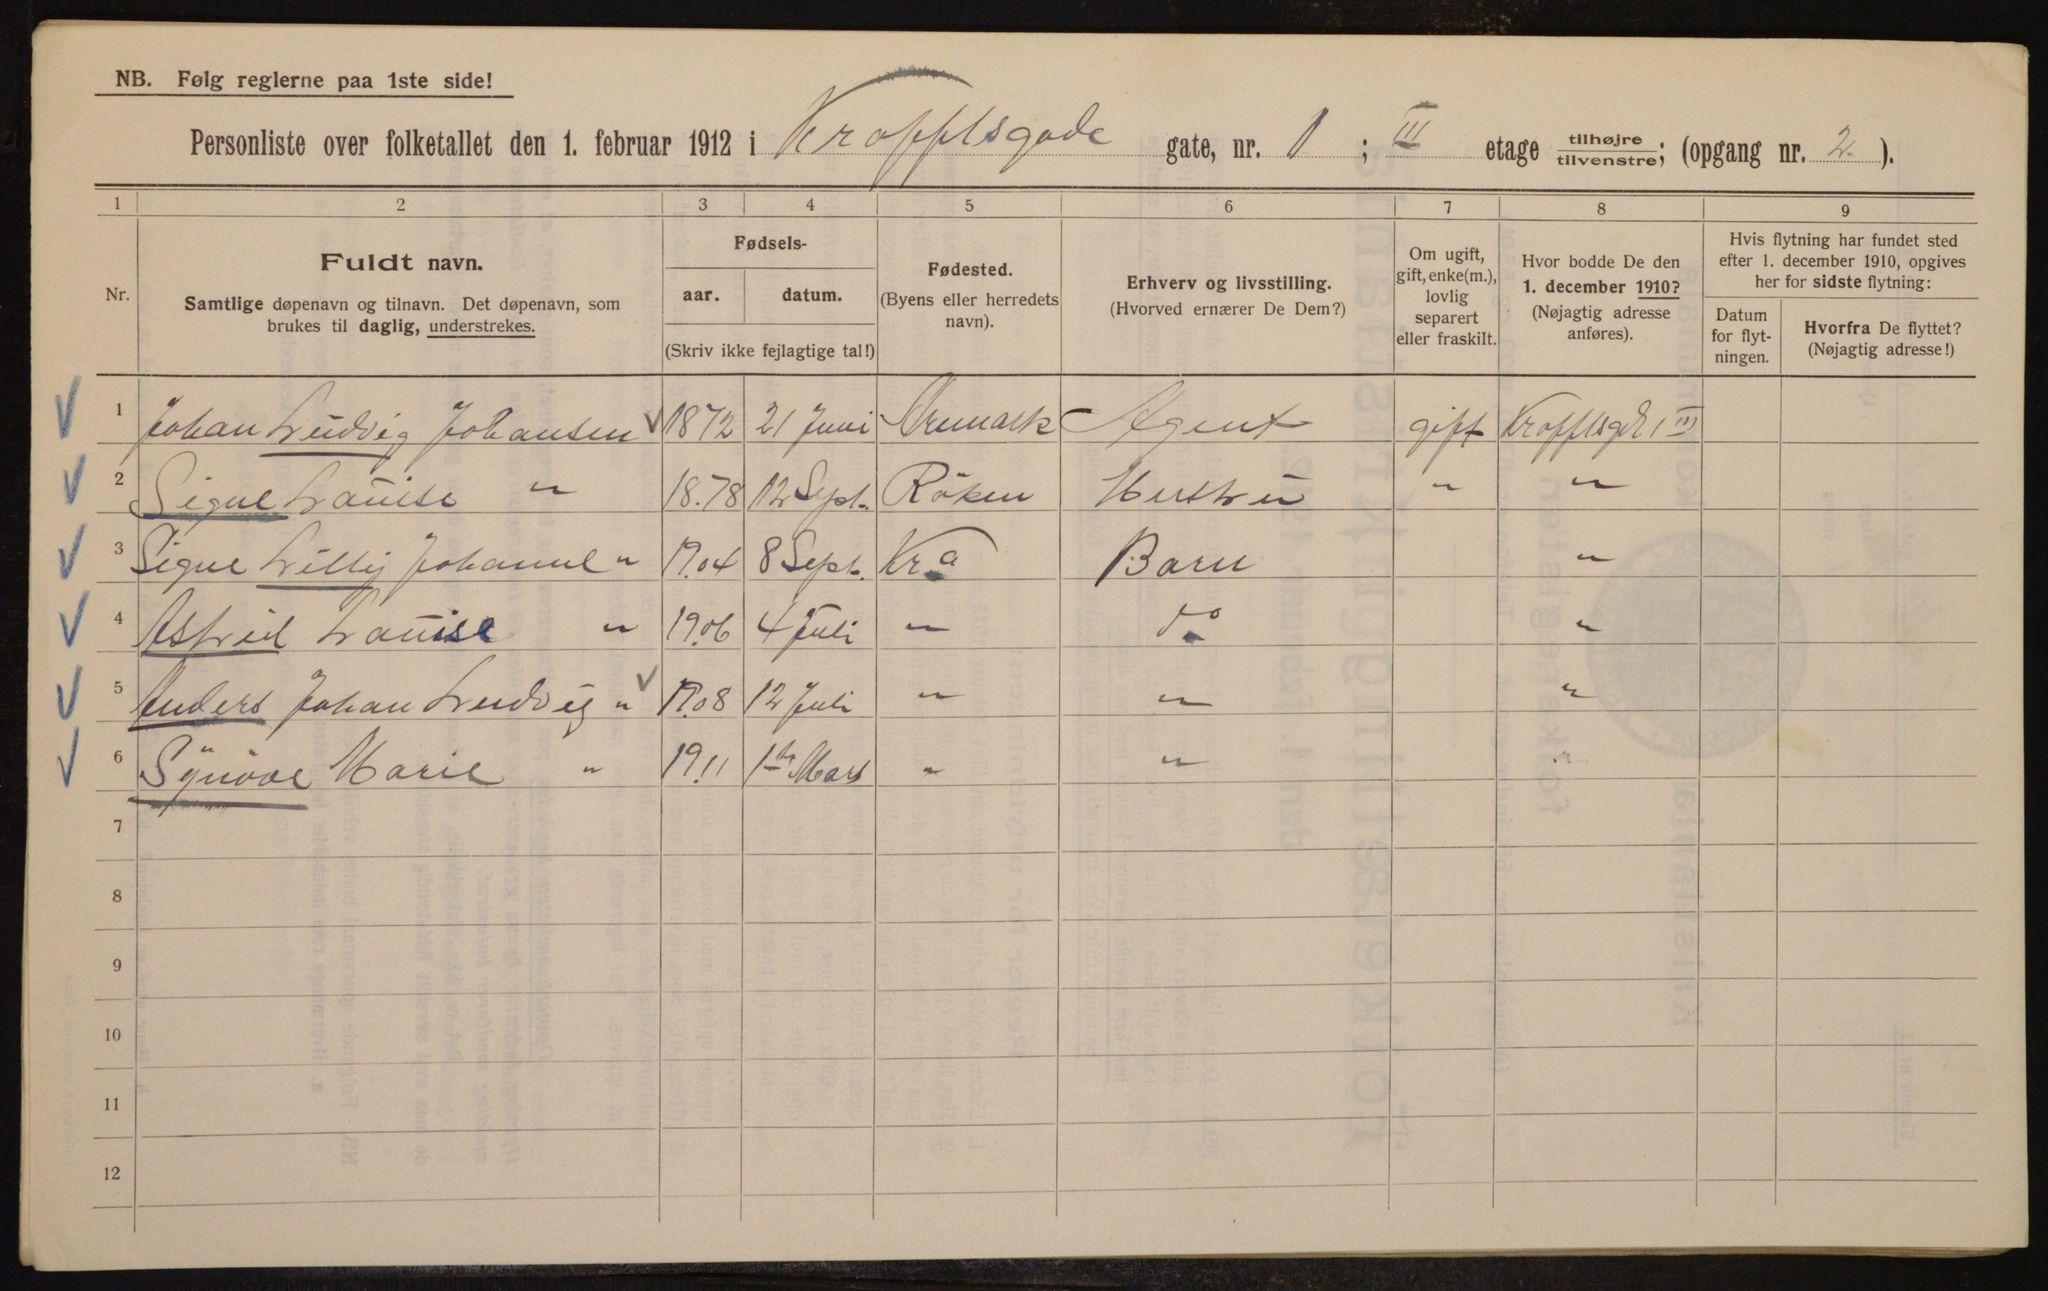 NB. Følg reglerne paa 1ste side!
Personliste over folketallet den 1. februar 1912 i Kropffsgade gate, nr. 1 ; III etage tilhøjre/tilvenstre; (opgang nr. 2. ).
1 2 3 4 5 6 7 8 9
Nr.
Fuldt navn.
Samtlige døpenavn og tilnavn. Det døpenavn, som
brukes til daglig, understrekes.
Fødsels-
aar. datum.
(Skriv ikke fejlagtige tal!)
Fødested.
(Byens eller herredets
navn).
Erhverv og livsstilling.
(Hvorved ernærer De Dem?)
Om ugift,
gift, enke(m.),
lovlig
separert
eller fraskilt.
Hvor bodde De den
1. december 1910?
(Nøjagtig adresse
anføres).
Hvis flytning har fundet sted
efter 1. december 1910, opgives
her for sidste flytning:
Datum
for flyt-
ningen.
Hvorfra De flyttet?
(Nøjagtig adresse!)
1 Johan Ludvig Johansen 1872 21 Juni Aremark Agent gift Kropffsgd. 1 III
2 Signe Louise " 18.78 12 Sept. Röken Hustru " "
3 Signe Lilly Johanne " 19.04 8 Sept. Kra Barn "
4 Astrid Louise " 19.06 4 Juli " do "
5 Anders Johan Ludvig " 19.08 12 Juli " " "
6 Synöve Marie " 19.11 1ste Mars " " "
7
8
9
10
11
12